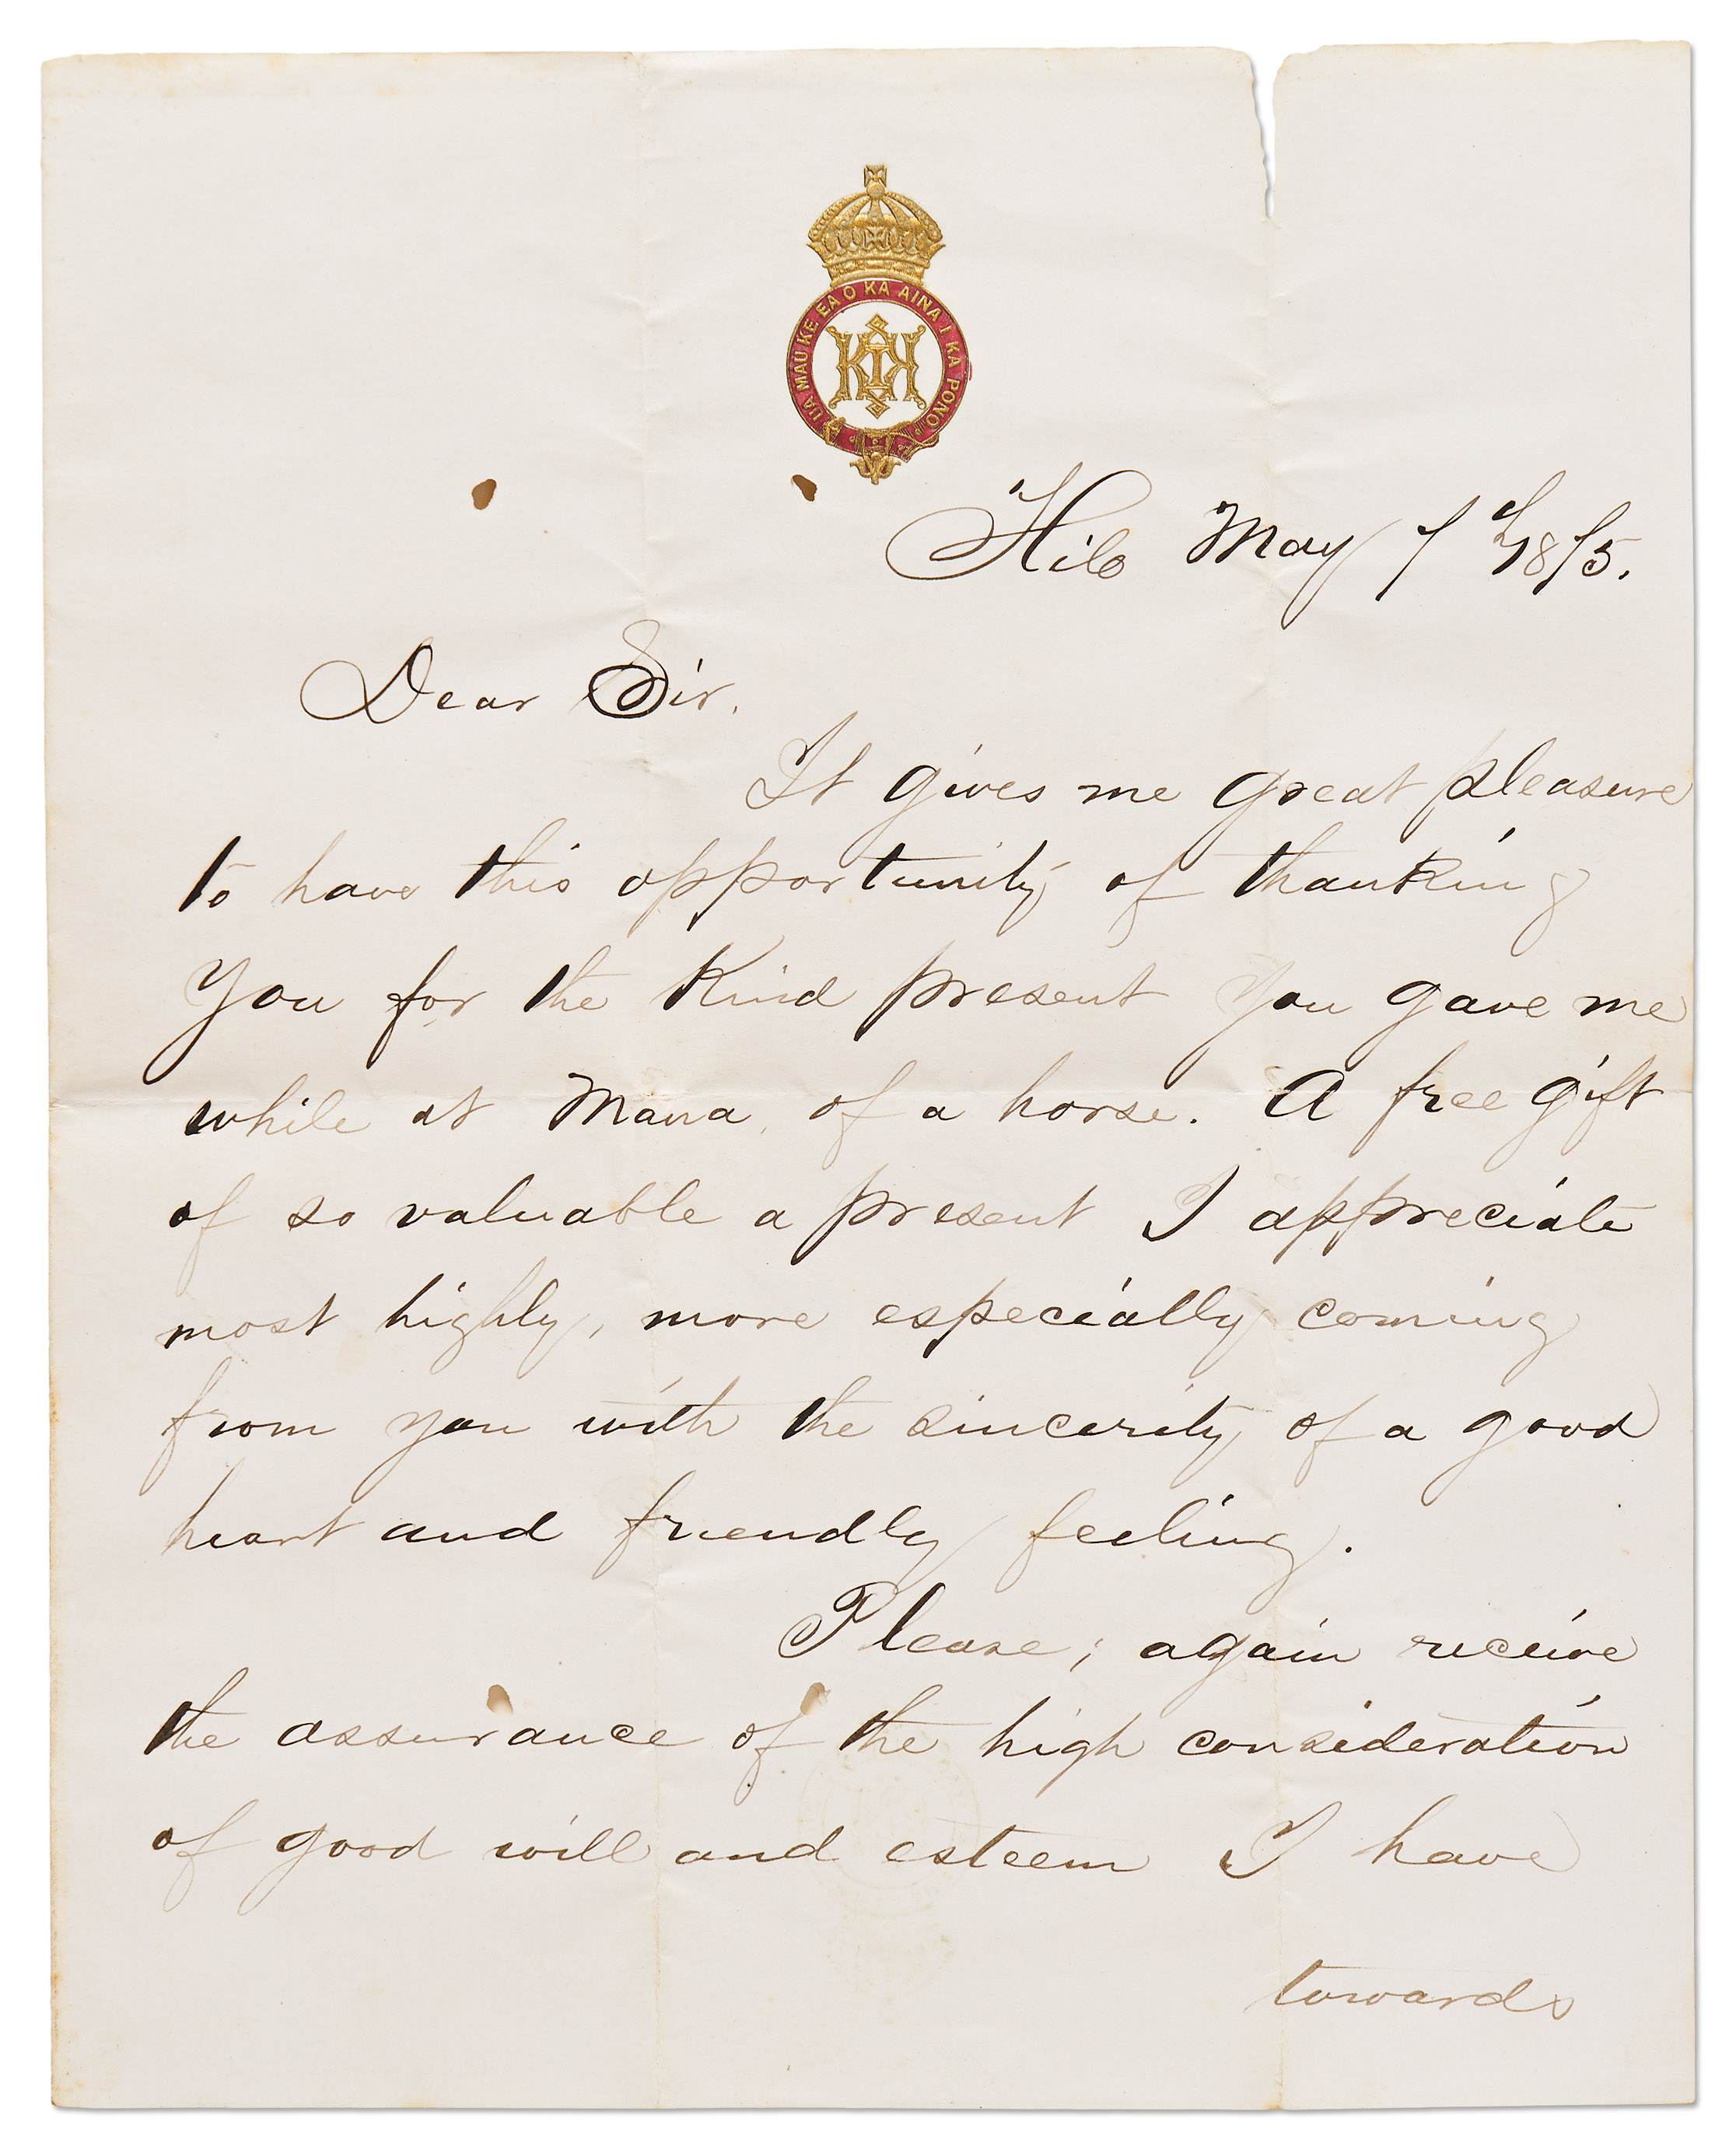 UA MAU KE EA O KA AINA I KA PONO
Hilo May 7th 1875.
Dear Sir.
It gives me great pleasure
to have this opportunity of thanking
You for the Kind present You gave me
while at Mana, of a horse. A free gift
of so valuable a present I appreciate
most highly, more especially coming
from you with the sincerity of a good
heart and friendly feeling.
Please; again receive
the assurance of the high consideration
of good will and esteem I have
towards